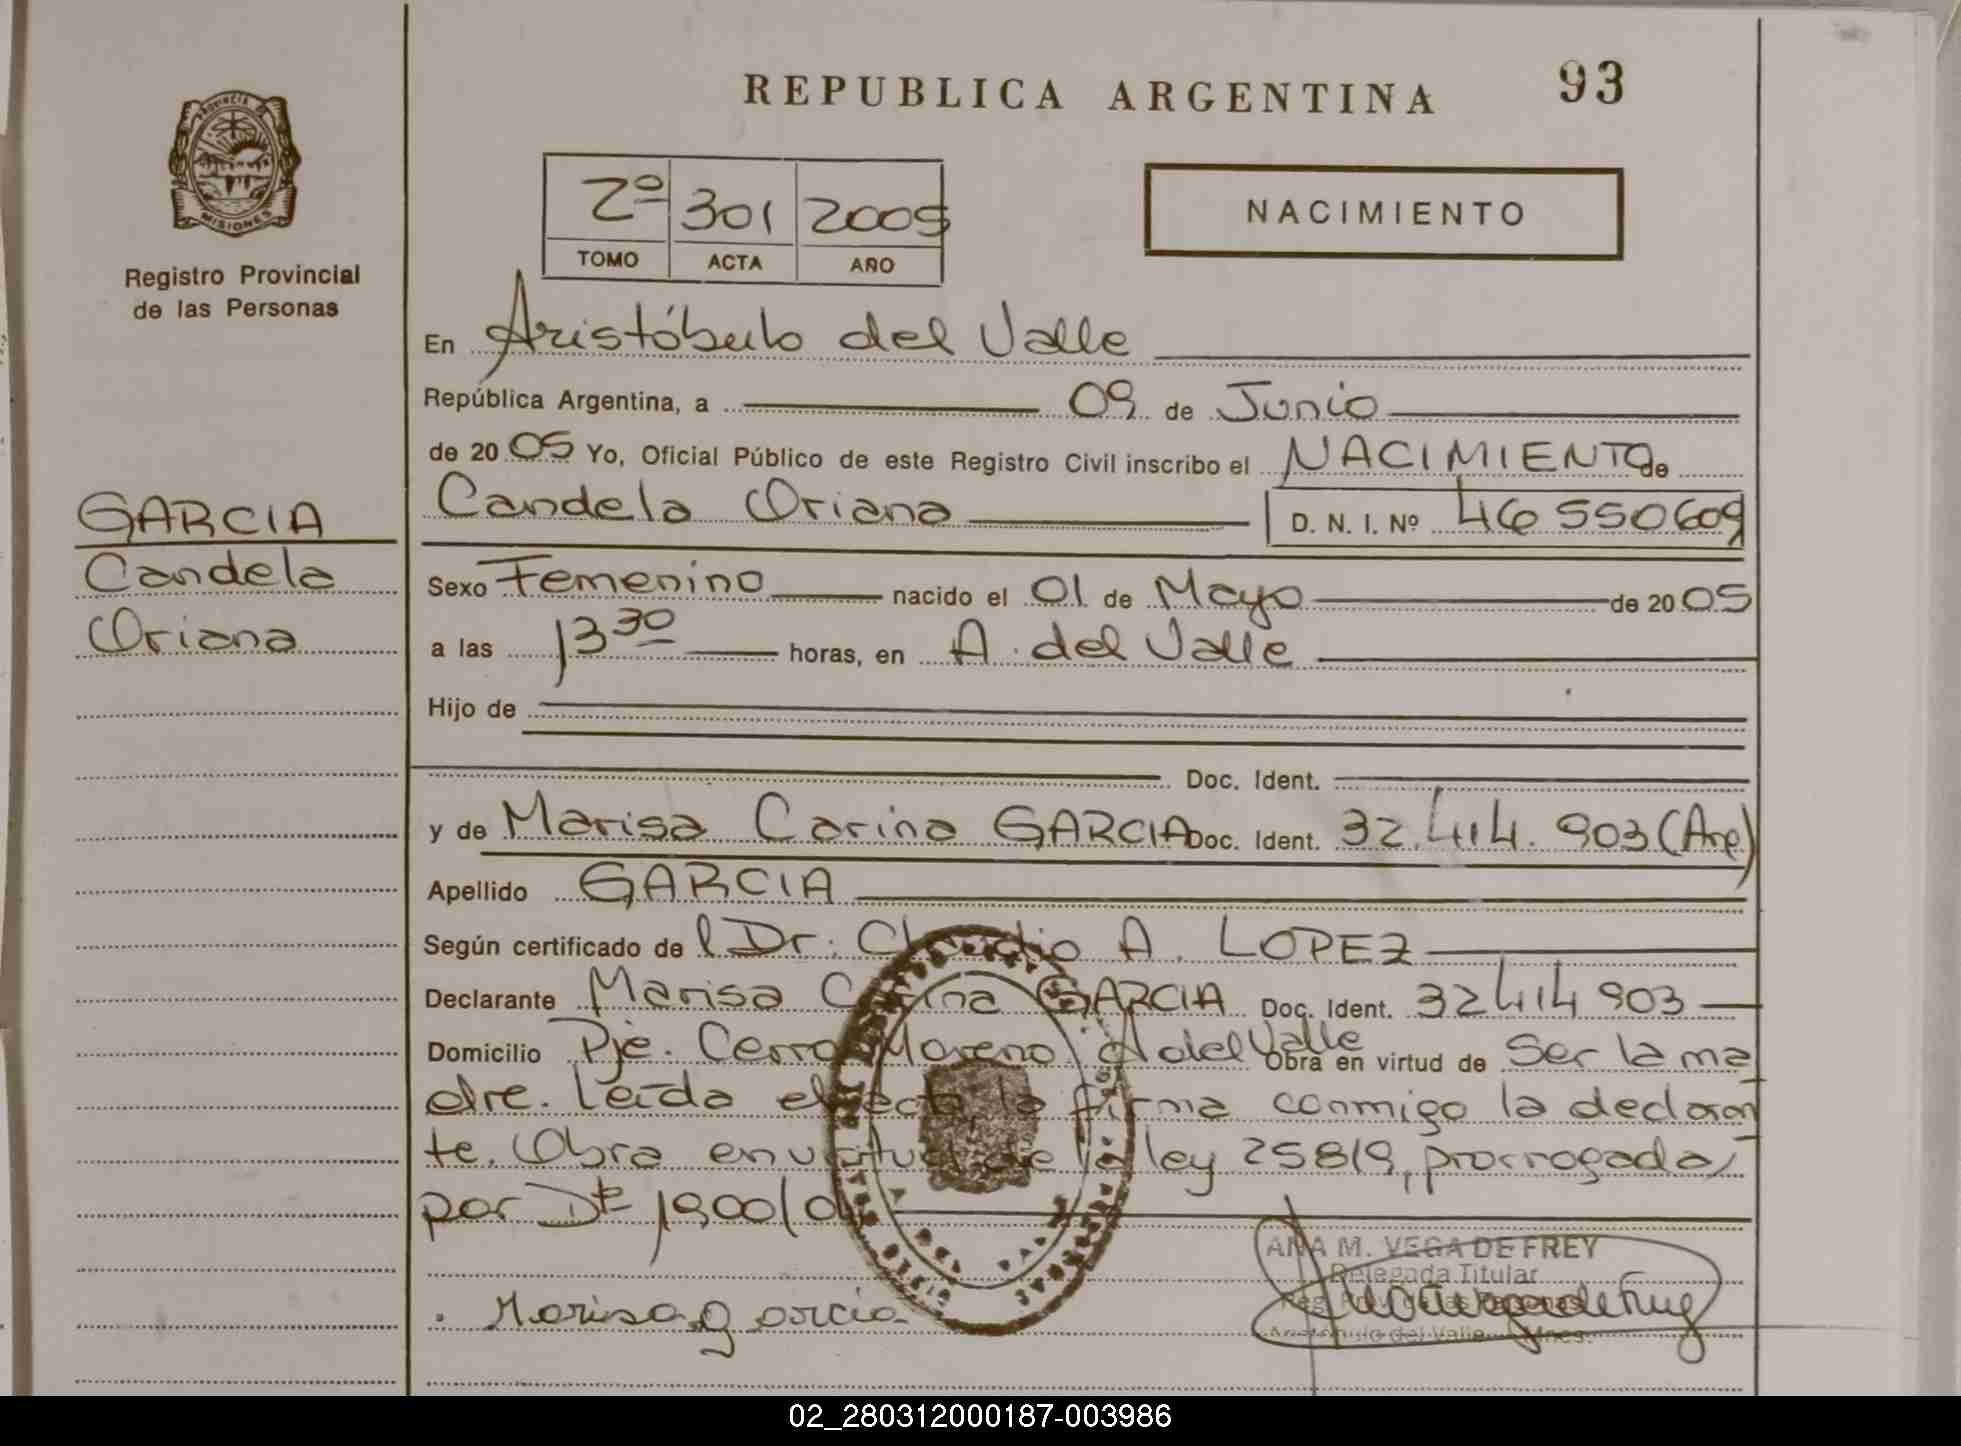 REPUBLICA ARGENTINA 93
PROVINCIA DE
MISIONES
Registro Provincial
de las Personas
2º 301 2005
TOMO ACTA AÑO
NACIMIENTO
En Aristóbulo del Valle
República Argentina, a 09 de Junio
de 2005 Yo, Oficial Público de este Registro Civil inscribo el NACIMIENTO de
Candela Oriana D. N. I. Nº 46550609
GARCIA
Candela
Oriana
Sexo Femenino nacido el 01 de Mayo de 2005
a las 13 30 horas, en A. del Valle
Hijo de
Doc. Ident.
y de Marisa Carina GARCIA Doc. Ident. 32.414.903 (Arg)
Apellido GARCIA
Según certificado de l Dr. Claudio A. LOPEZ
Declarante Marisa Carina GARCIA Doc. Ident. 32414903
Domicilio Pje. Cerro Moreno A del Valle Obra en virtud de Ser la ma
dre. Leída el acta, la firma conmigo la declaran
te. Obra en virtud de la ley 25819, prorrogada
por Dto 1900/04
Marisa garcia
ANA M. VEGA DE FREY
Delegada Titular
Aristóbulo del Valle - Mnes.
02_280312000187-003986